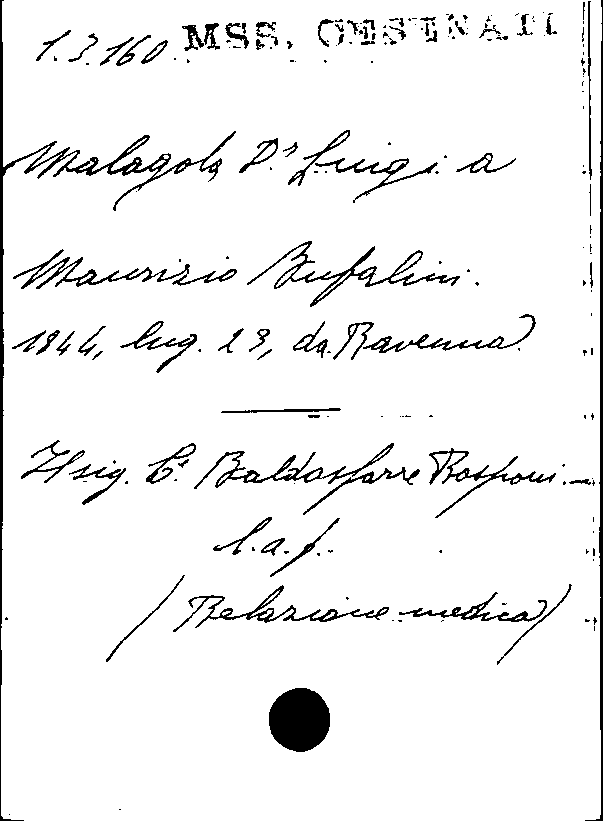 1.3.160 MSS. CESENATI
Malagola D.r Luigi a
Maurizio Bufalini.
1844, lug. 23, da Ravenna.
Il sig. C.e Baldassarre Rasponi. –
l.a.f.
(Relazione medica)